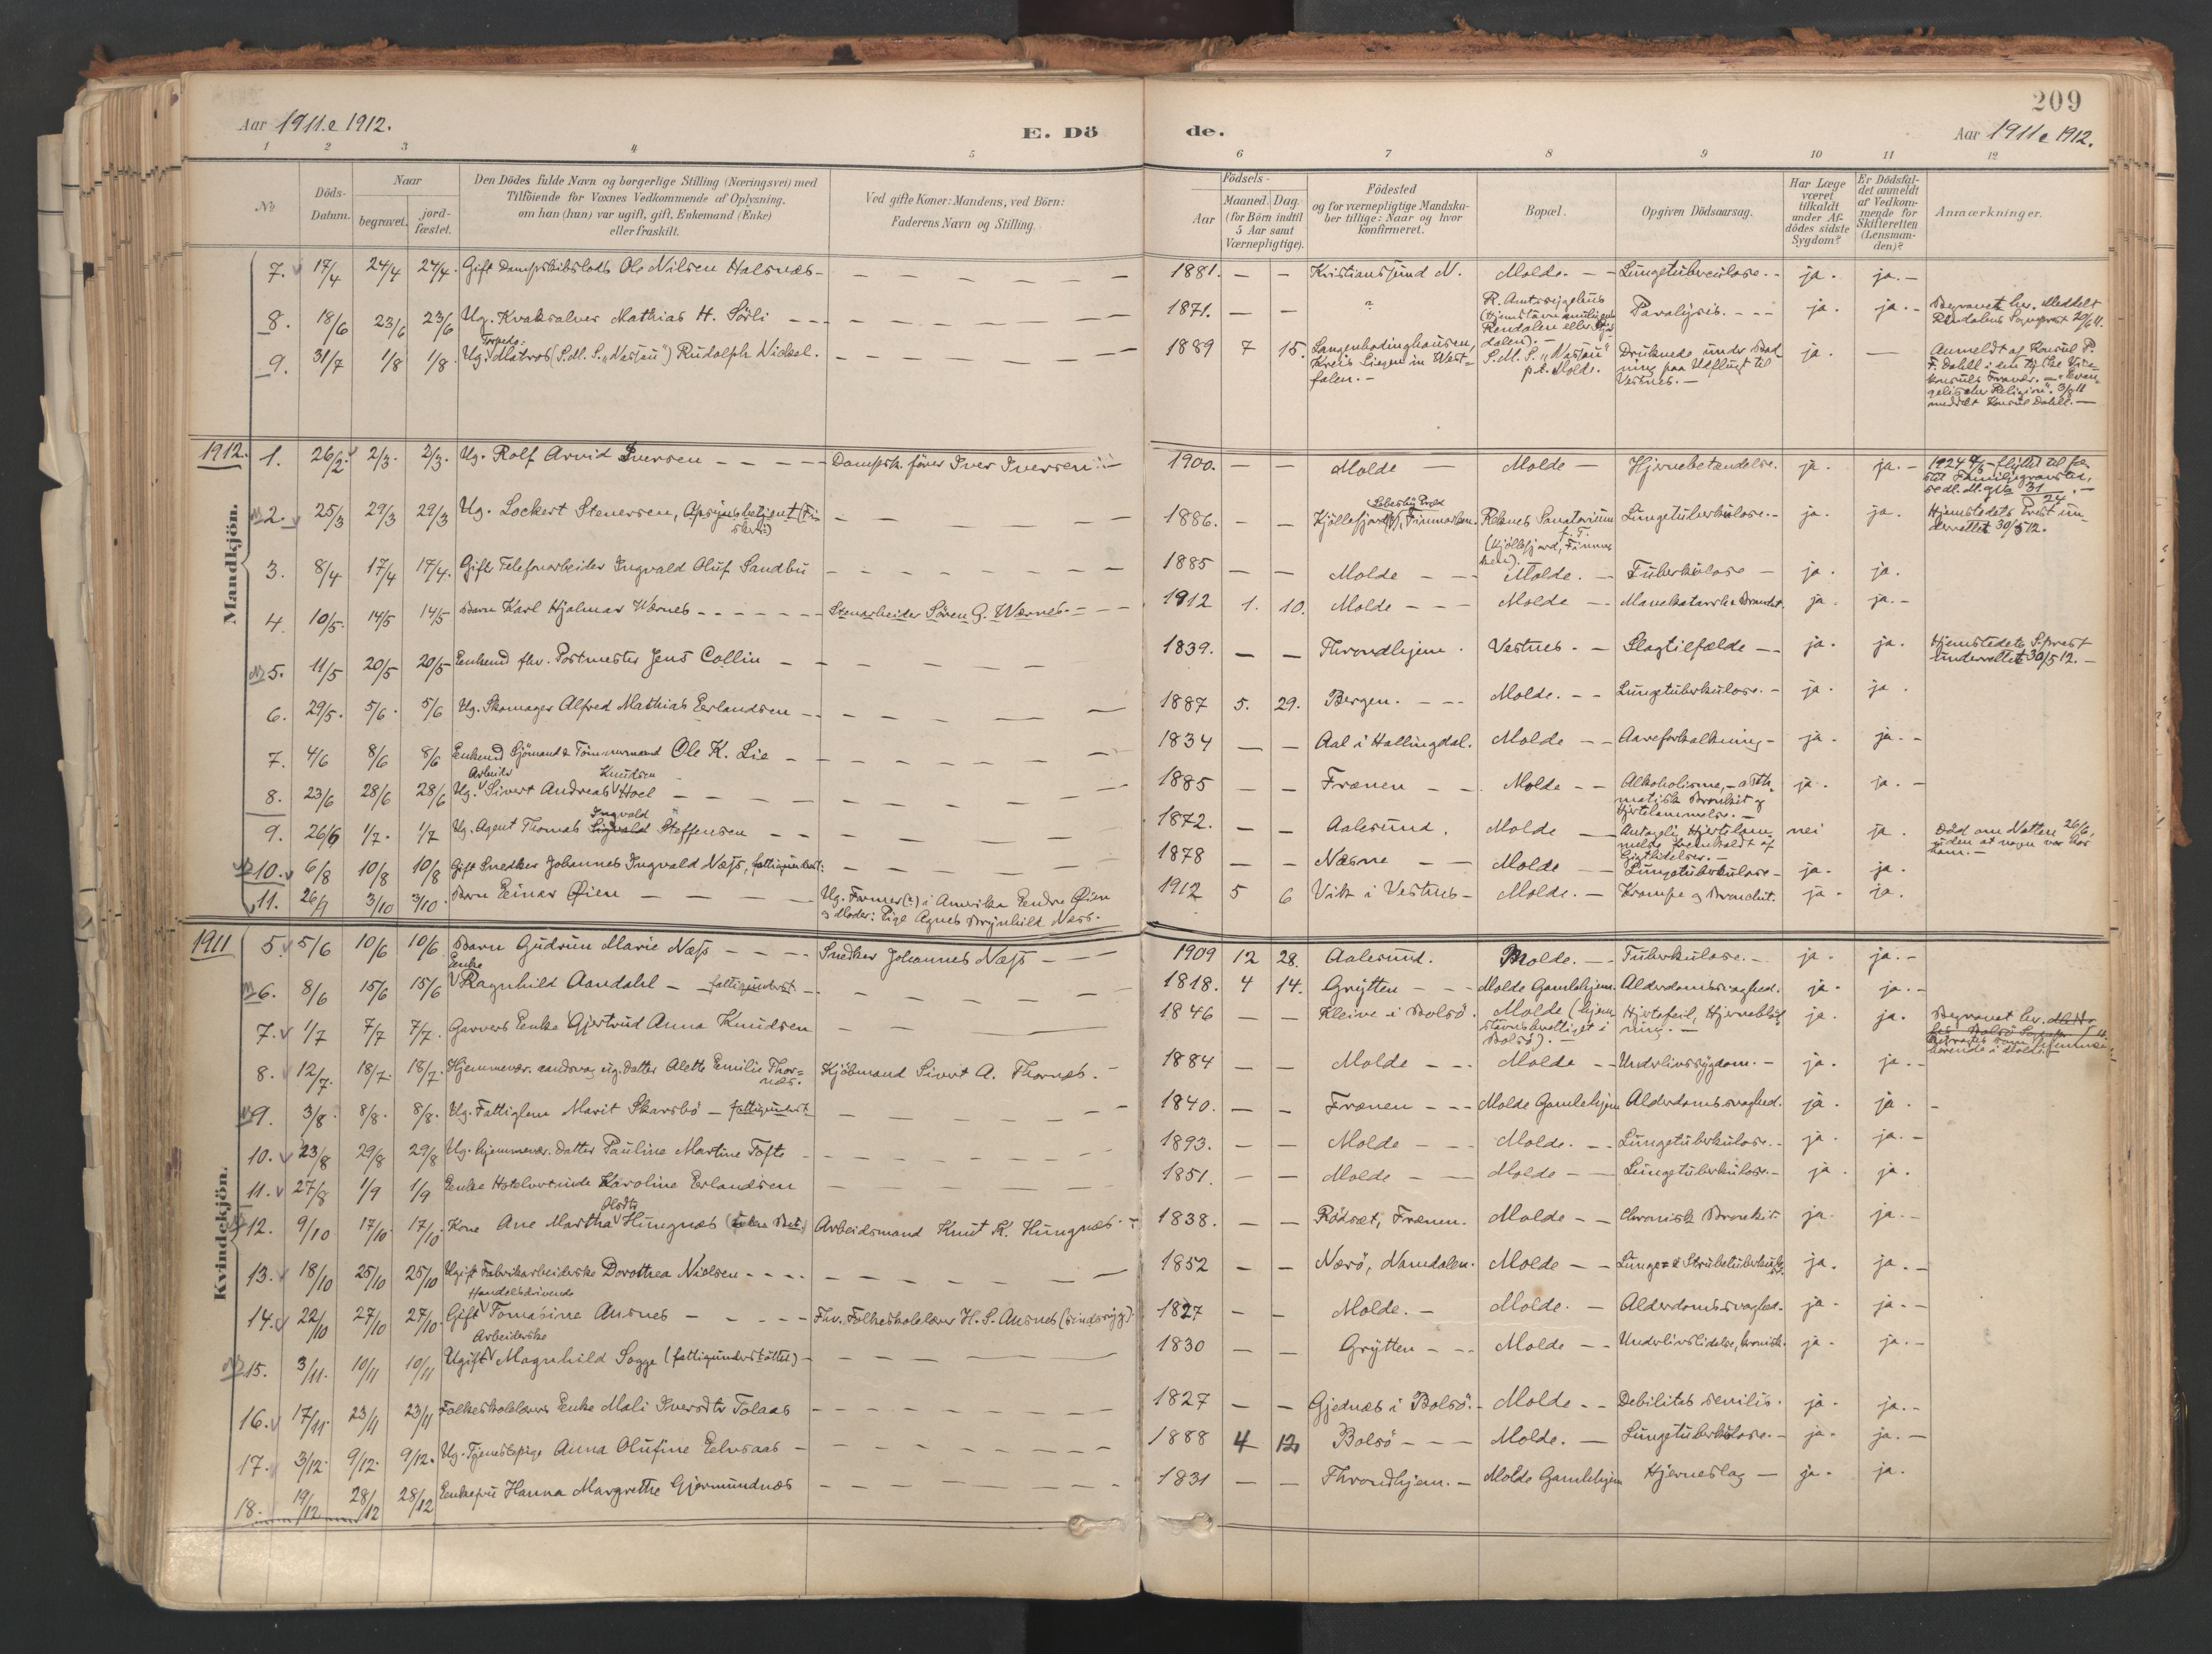 209
Aar 1911 e 1912.
E. Dö de.
Aar 1911 e 1912.
1 2 3 4 5 6 7 8 9 10 11 12
No
Döds-Datum.
Naar
begravet.
jord-fæstet.
Den Dödes fulde Navn og borgerlige Stilling (Næringsvei) med
Tilföiende for Voxnes Vedkommende af Oplysning,
om han (hun) var ugift, gift, Enkemand (Enke)
eller fraskilt.
Ved gifte Koner: Mandens, ved Börn:
Faderens Navn og Stilling.
Födsels-
Aar
Maaned. Dag.
(for Börn indtil
5 Aar samt
Værnepligtige).
Födested
og for værnepligtige Mandska-
ber tillige: Naar og hvor
konfirmeret.
Bopæl.
Opgiven Dödsaarsag.
Har Læge
været
tilkaldt
under Af-
dödes sidste
Sygdom?
Er Dödsfal-
det anmeldt
af Vedkom-
mende for
Skifteretten
(Lensman-
den)?
Anmærkninger.
Mandkjön.
7. 17/4 24/4 24/4. Gift Dampskibslods Ole Nilsen Halsnæs - 1881. - - Kristiansund N. Molde. - Lungetuberculose. - ja. ja. -
8. 18/6 23/6 23/6 Ug. Kvaksalver Mathias H. Sörli - 1871. - - ? R. Amtssygehus
(Hjemstavn
Rendalen eller
dalen). - Paralysis. - ja. ja. - Begravet her. Meddelt
Rendalens Sogneprest 20/6 11.
9. 31/7 1/8 1/8. Ug. Torpedo: Matros (S.M.S. "Nassau") Rudolph Nickel. - 1889 7 15. Langenholdinghausen,
Kreis Siegen in West-
falen. - S.M.S. "Nassau"
p.t. Molde. Druknede under Bad-
ning paa Udflugt til
Vestnes. - ja. - Anmeldt af Konsul P.
F. Dahl i den tyske Vice-
konsuls Fravær. - "Evan-
gelischer Religion". 3/8 11
meddelt Konsul Dahl. -
1912. 1. 26/2. 2/3. 2/3. Ug. Rolf Arvid Iversen - Dampsk. förer Iver Iversen - 1900. - - Molde - Molde - Hjernebetændelse. ja. ja. - 1924 flyttet til fæ-
stet Familjegravsted,
31/24. -
2. 25/3 29/3 29/3 Ug. Lockert Stenersen, Opsynsbetjent (Fi-
skeri) - 1886. - - Lebesby Prgld
Kjöllefjord (?), Finmarken. Reknes Sanatorium
(Kjöllefjord, Finmar
ken). - Lungetuberkulose. - ja. ja. Hjemstedets Prest un-
derrettet 30/5 12.
3. 8/4 17/4 17/4. Gift Telefonarbeider Ingvald Oluf Sandbu - 1885 - - Molde - Molde. - Tuberkulose - ja. ja.
4. 10/5. 14/5 14/5 Barn Karl Hjalmar Wærnes - Stenarbeider Sören G. Wærnes. - 1912 1. 10. Molde - Molde - Mavekatarrh & Bronchit. ja. ja. -
5. 11/5 20/5 20/5 Enkemd fhv. Postmester Jens Collin - 1839. - - Throndhjem. Vestnes. - Slagtilfælde - ja. ja. Hjemstedets S.prest
underrettet 30/5 12. -
6. 29/5. 5/6. 5/6 Ug. Skomager Alfred Mathias Erlandsen - 1887 5. 29. Bergen. - Molde. - Lungetuberkulose. - ja. ja.
7. 4/6 8/6 8/6 Enkemd Sjömand & Tömmermand Ole K. Lie - 1834 - - Aal i Hallingdal. Molde - Aareforkalkning - ja. ja. -
8. 23/6 28/6 28/6 Ug. Arbeider Sivert Andreas Knudsen Hoel - 1885 - - Frænen - Molde - Alkoholisme, - asth-
matisk Bronkit og
Hjertelammelse. - ja. ja. -
9. 26/6 1/7. 1/7 Ug. Agent Thomas Sigvald Ingvald Steffensen - 1872. - - Aalesund. Molde - Antagelig Hjertelam-
melse fremkaldt af
Gigtlidelser. - nei ja. Död om Natten 26/6,
uden at nogen var hos
ham. -
10. 6/8 10/8 10/8 Gift Snedker Johannes Ingvald Næss, fattigunderst: - 1878 - - Næsne - Molde - Lungetuberkulose - ja. ja.
11. 26/9 3/10 3/10. Barn Einar Øien - Ug. Farmer (?) i Amerika Endre Øien
og Moder: Pige Agnes Brynhild Næss. 1912 5 6 Vik i Vestnes - Molde. - Krampe og Bronchit. ja. ja.
Kvindekjön.
1911 5. 5/6 10/6 10/6 Barn Gudrun Marie Næss - Snedker Johannes Næss - 1909 12 28. Aalesund. Molde. - Tuberkulose. - ja. ja. -
6. 8/6 15/6 15/6 Enke Ragnhild Aandahl - fattigunderst - 1818. 4 14. Grytten - Molde Gamlehjem. Alderdomssvaghed. ja. ja. -
7. 1/7 7/7 7/7. Garvers Enke Gjertrud Anna Knudsen - 1846 - - Kleive i Bolsö. Molde (hjem-
stavnsberettiget i
Bolsö). - Hjertefeil, Hjerneblöd-
ning. - ja. ja. Begravet her.
8. 12/7. 18/7. 18/7. Hjemmevær. aandssvag ug. datter Alette Emilie Thor-
næs. Kjöbmand Sivert A. Thornæs. - 1884 - - Molde - Molde - Underlivssygdom. - ja. ja. -
9. 3/8. 8/8. 8/8. Ug. Fattiglem Marit Skarsbö - fattigunderst - 1840. - - Frænen - Molde Gamlehjem Alderdomssvaghed. ja. ja. -
10. 23/8 29/8 29/8 Ug. hjemmevær. datter Pauline Martine Tofte - 1893. - - Molde - Molde. - Lungetuberkulose. - ja. ja. -
11. 27/8 1/9 1/9 Enke Hotelvertinde Karoline Erlandsen - 1851. - - Molde - Molde - Lungetuberkulose. - ja. ja.
12. 9/10 17/10. 17/10. Kone Ane Martha Olsdtr Hungnæs Arbeidsmand Knut K. Hungnæs. - 1838. - - Rödsæt, Frænen. Molde - Chronisk Bronkit. ja. ja. -
13. 18/10 25/10 25/10 Ugift Fabrikarbeiderske Dorothea Nielsen - 1852 - - Nærö, Namdalen. Molde - Lunge- & Strubetuberkulose. ja. ja. -
14. 22/10 27/10 27/10. Gift Handelsdrivende Tomasine Ausnes - Fhv. Folkeskolelærer H. S. Ausnes (sindssyg). 1827 - - Molde. - Molde. - Alderdomssvaghed. ja. ja. -
15. 3/11. 10/11 10/11 Ugift Arbeiderske Magnhild Sogge (fattigunderstöttet) - 1830 - - Grytten - Molde - Underlivslidelse, kronisk. ja. ja. -
16. 17/11. 23/11 23/11 Folkeskolelærers Enke Mali Iversdtr Tolaas - 1827 - - Gjednæs i Bolsö. - Molde - Debilitas senilis. ja. ja. -
17. 3/12. 9/12. 9/12. Ug. Tjenestepige Anna Olufine Eelvsaas - 1888 4 12 Bolsö - Molde. - Lungetuberkulose. - ja. ja. -
18. 19/12 28/12 28/12 Enkefru Hanna Margrethe Gjermundnæs - 1831 - - Throndhjem. - Molde Gamlehjem Hjerneslag - ja. ja.